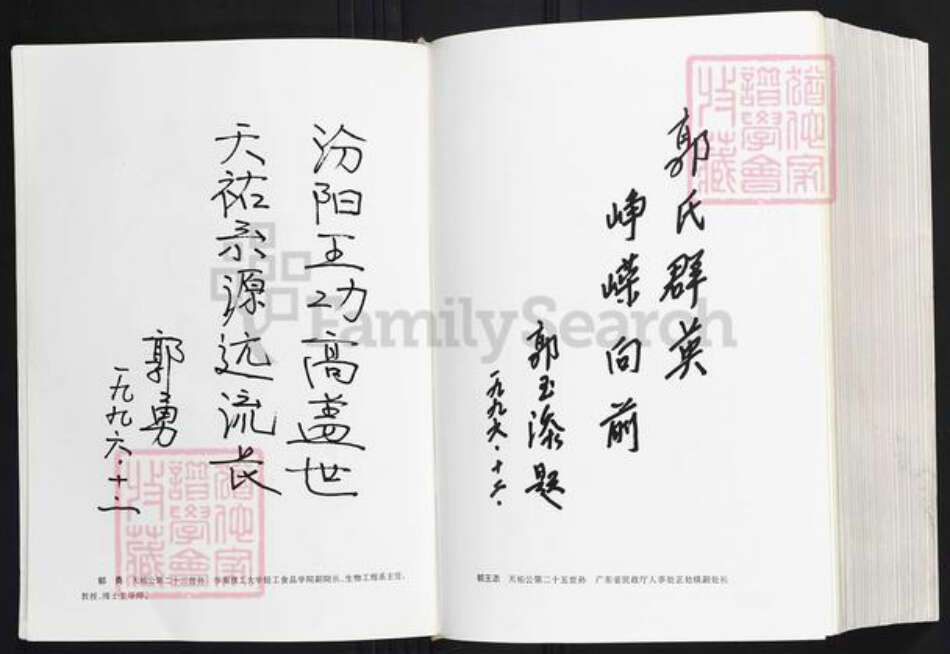 汾阳王功高盖世
天祐宗源远流长
郭勇
一九九六.十.二
郭勇（天祐公第二十三世孙）华南理工大学轻工食品学院副院长、生物工程系主任、
教授、博士生导师。
郭氏群英
峥嵘向前
郭玉添题
一九九六.十二.
郭玉添 天祐公第二十五世孙 广东省民政厅人事处正处级副处长
FamilySearch
谱学会
收藏
谱学会
收藏